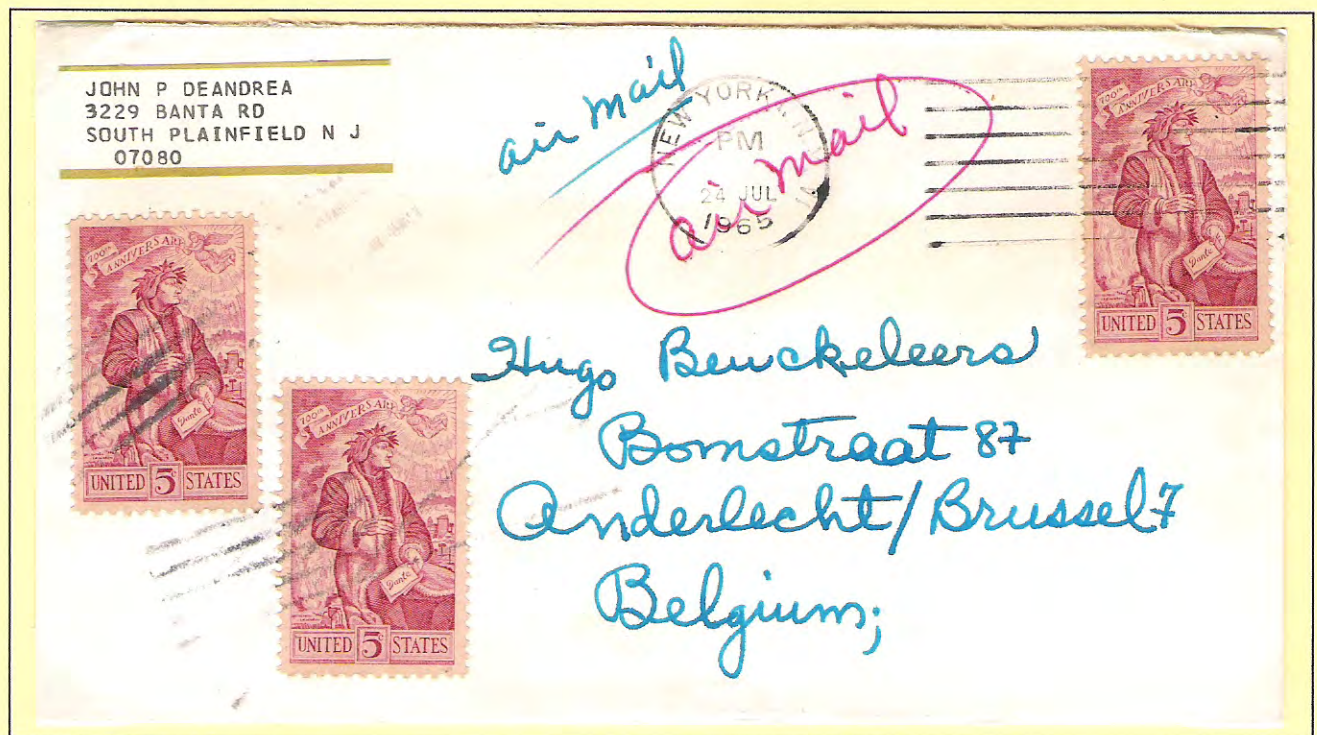 JOHN P DEANDREA
3229 BANTA RD
SOUTH PLAINFIELD N J
07080
air mail
NEW YORK, N.Y.
PM
24 JUL
1965
air mail
700th
ANNIVERSARY
Dante
UNITED 5c STATES
700th
ANNIVERSARY
Dante
UNITED 5c STATES
700th
ANNIVERSARY
Dante
UNITED 5c STATES
Hugo Beuckeleers
Bomstraat 87
Anderlecht/Brussel 7
Belgium;